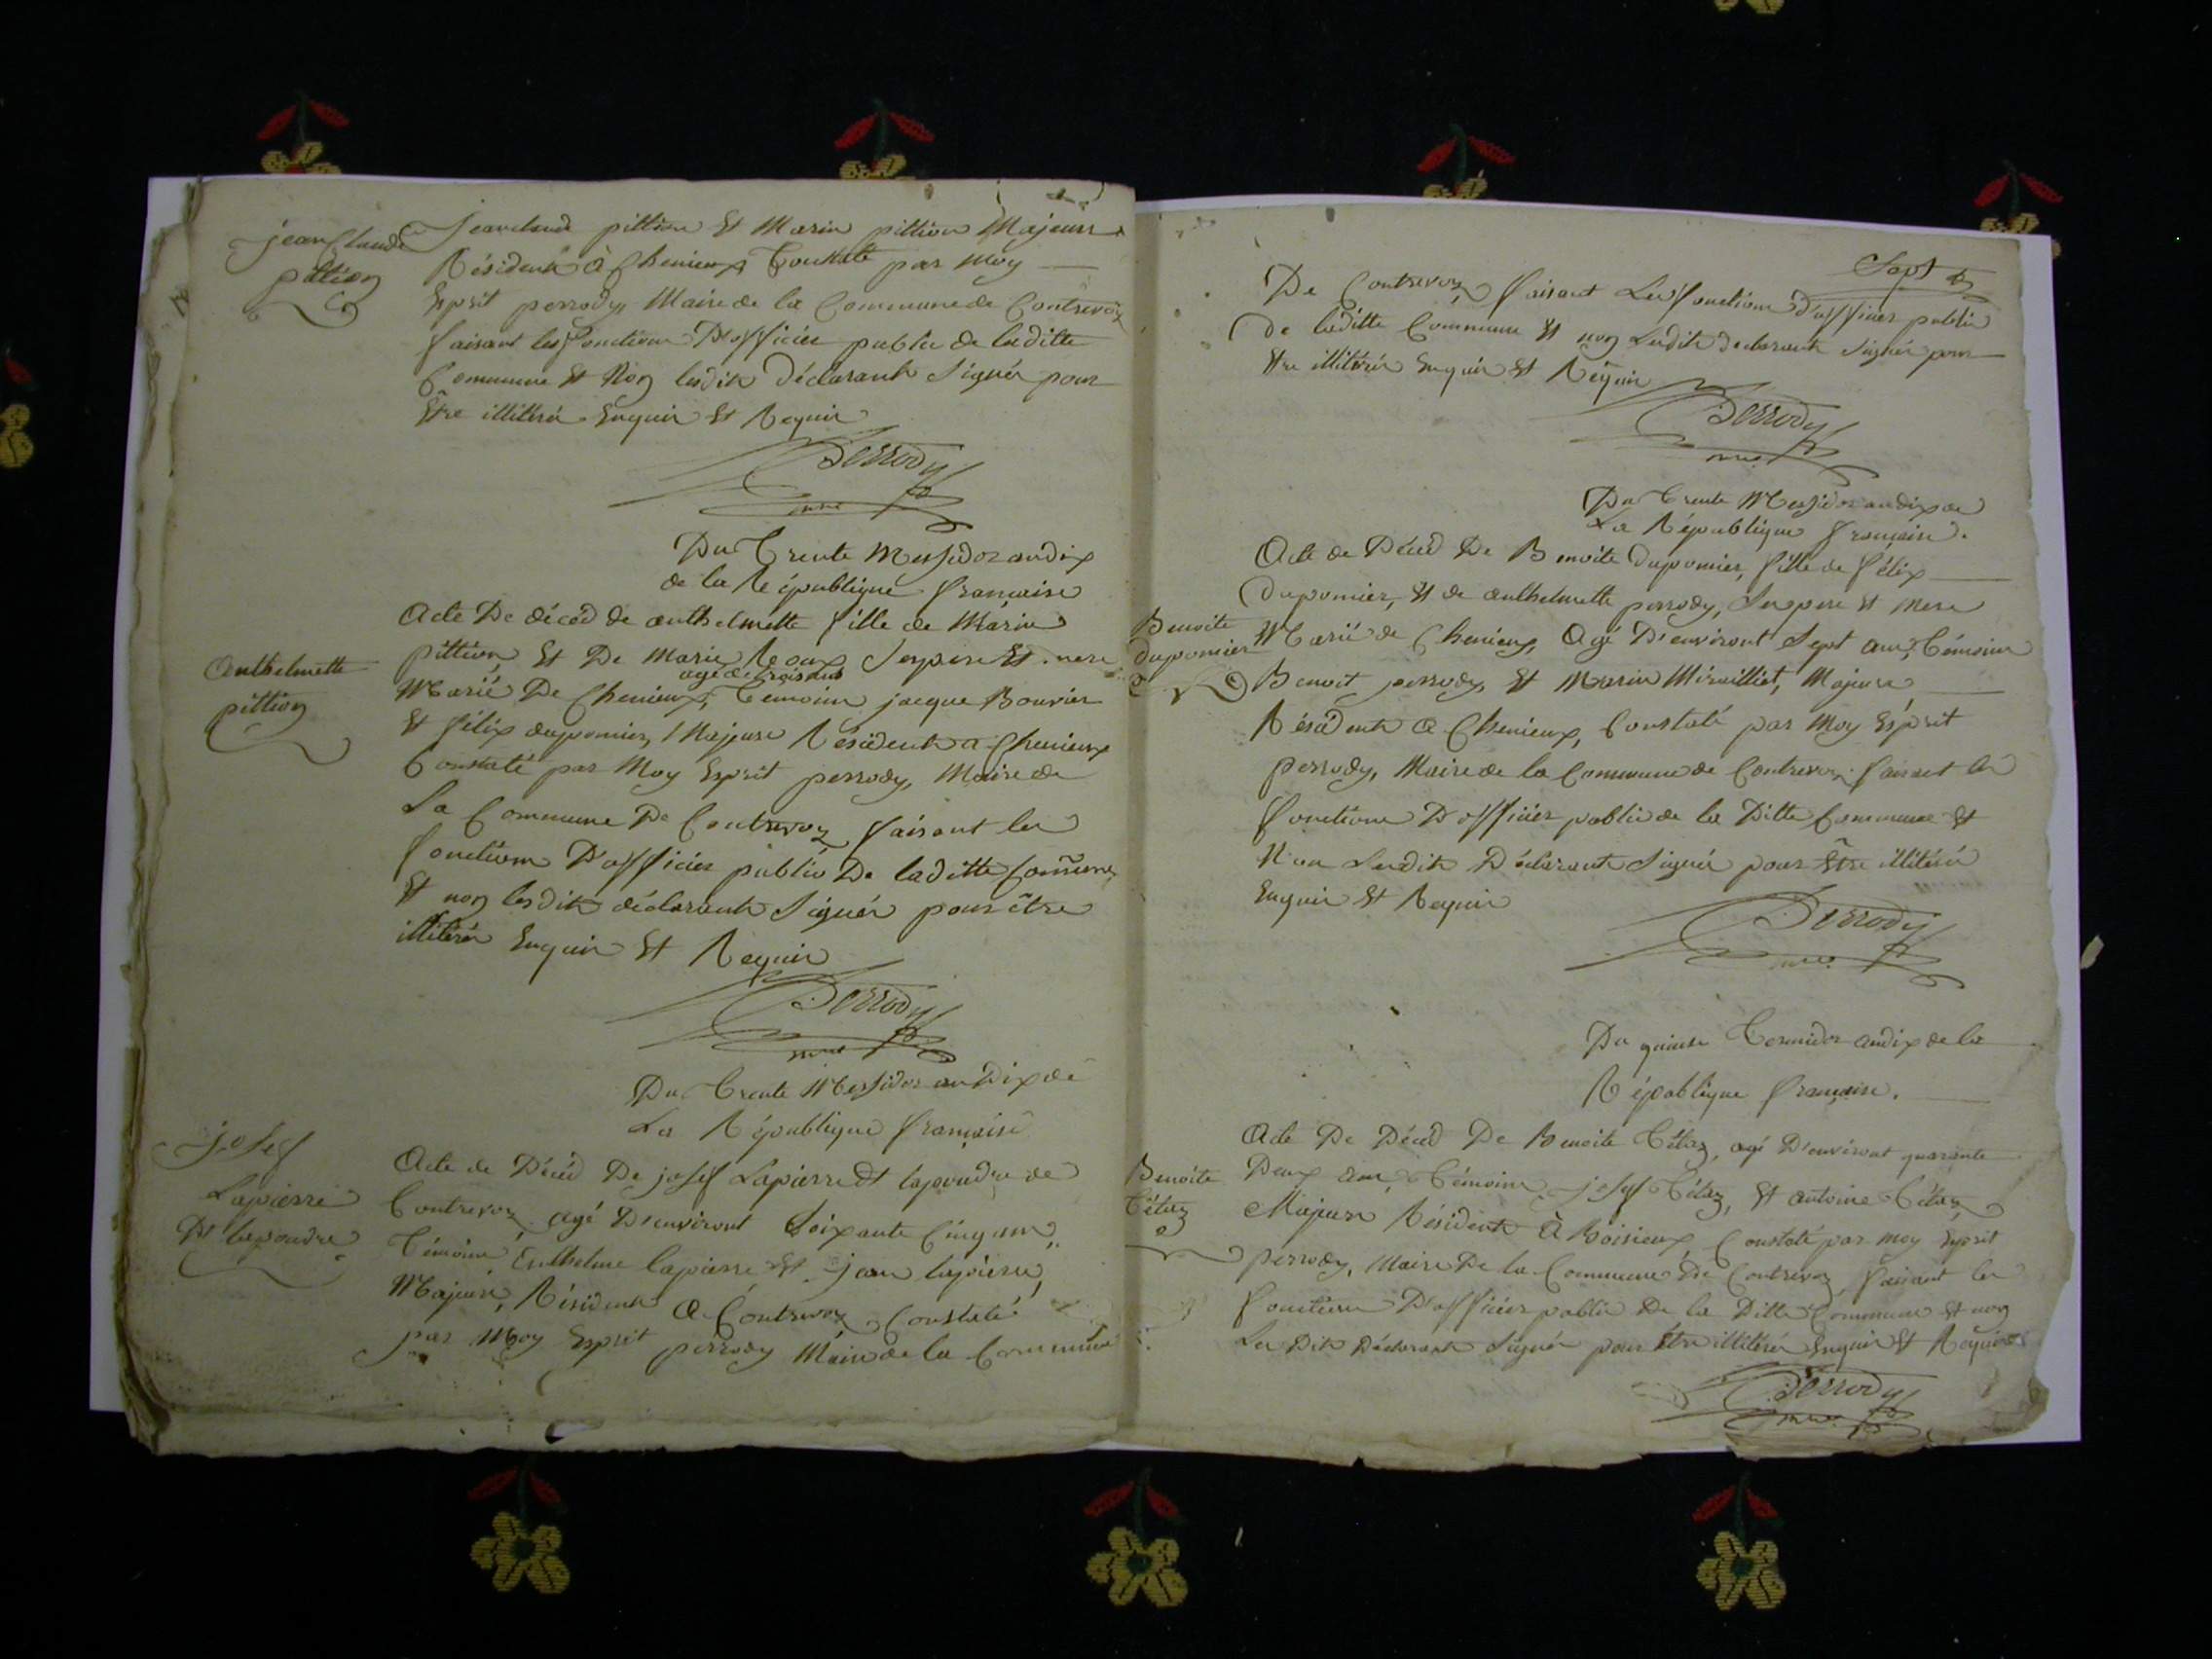 jean Claude
pittion
Jeanclaude pittion Et Marin pittion Majeurs
Résident à Chenieux Constaté par Moy
Esprit perrody, Maire de la Commune de Contrevoz
faisant les fonctions D'officier public de laditte
Commune Et Non lesdits Déclarants signés pour
Être illitéré Enquis Et Requis
Perrody
mre
Du Trente Messidor an dix
de la République française
Acte De décéd de anthelmette fille de Marin
pittion, Et De Marie Roux, Ses pere Et mere
agé de trois ans
Anthelmette
pittion
Marié De Chenieux, Temoins jacque Bouvier
Et félix duponnier, Majeurs Résident a Chenieux
Constaté par Moy Esprit perrody, Maire de
La Commune De Contrevoz faisant les
fonctions D'officier public De laditte Comune
Et non lesdits déclarants Signés pour être
illitéré Enquis Et Requis
Perrody
mre
Du Trente Messidor an Dix de
La République française
josef
Lapierre
Dt lapoudre
Acte de Décéd De josef Lapierre Dt lapoudre de
Contrevoz, agé D'environt Soixante Cinq ans,
Témoins, Enthelme lapierre Et jean lapierre,
Majeurs, Résident à Contrevoz, Constaté
par Moy Esprit perrody Maire de la Commune
Sept
De Contrevoz faisant Les fonctions D'officier public
de laditte Commune Et non Lesdits declarants Signés pour
Etre illitéré Enquis Et Requis
Perrody
mre
Du Trente Messidor an dix de
La République française.
Acte de Décéd De Benoite Duponnier, fille de félix
Duponnier, Et de anthelmette perrody, Ses pere Et Mere
Benoite
duponnier
Marié de Chenieux, Agé D'environt Sept ans, Témoins
Benoit perrody Et Marin Miraillet, Majeurs
Résident à Chenieux, Constaté par Moy Esprit
perrody, Maire de la Commune de Contrevoz faisant les
fonctions D'officier public de la Ditte Commune Et
Non Lesdits Déclarants Signés pour Être illitéré
Enquis Et Requis
Perrody
mre
Du quinse Termidor an dix de la
République française.
Acte De Décéd De Benoite Tétaz, agé D'environt quarante
Benoite
Tétaz
Deux ans, Témoins josef Tétaz, Et antoine Tétaz,
Majeurs Résident à Boisieux, Constaté par moy Esprit
perrody, Maire De la Commune De Contrevoz faisant les
fonctions D'officier public De la Ditte Commune Et non
Les Dits Déclarants Signés pour Être illitéré Enquis Et Requis
Perrody
mre